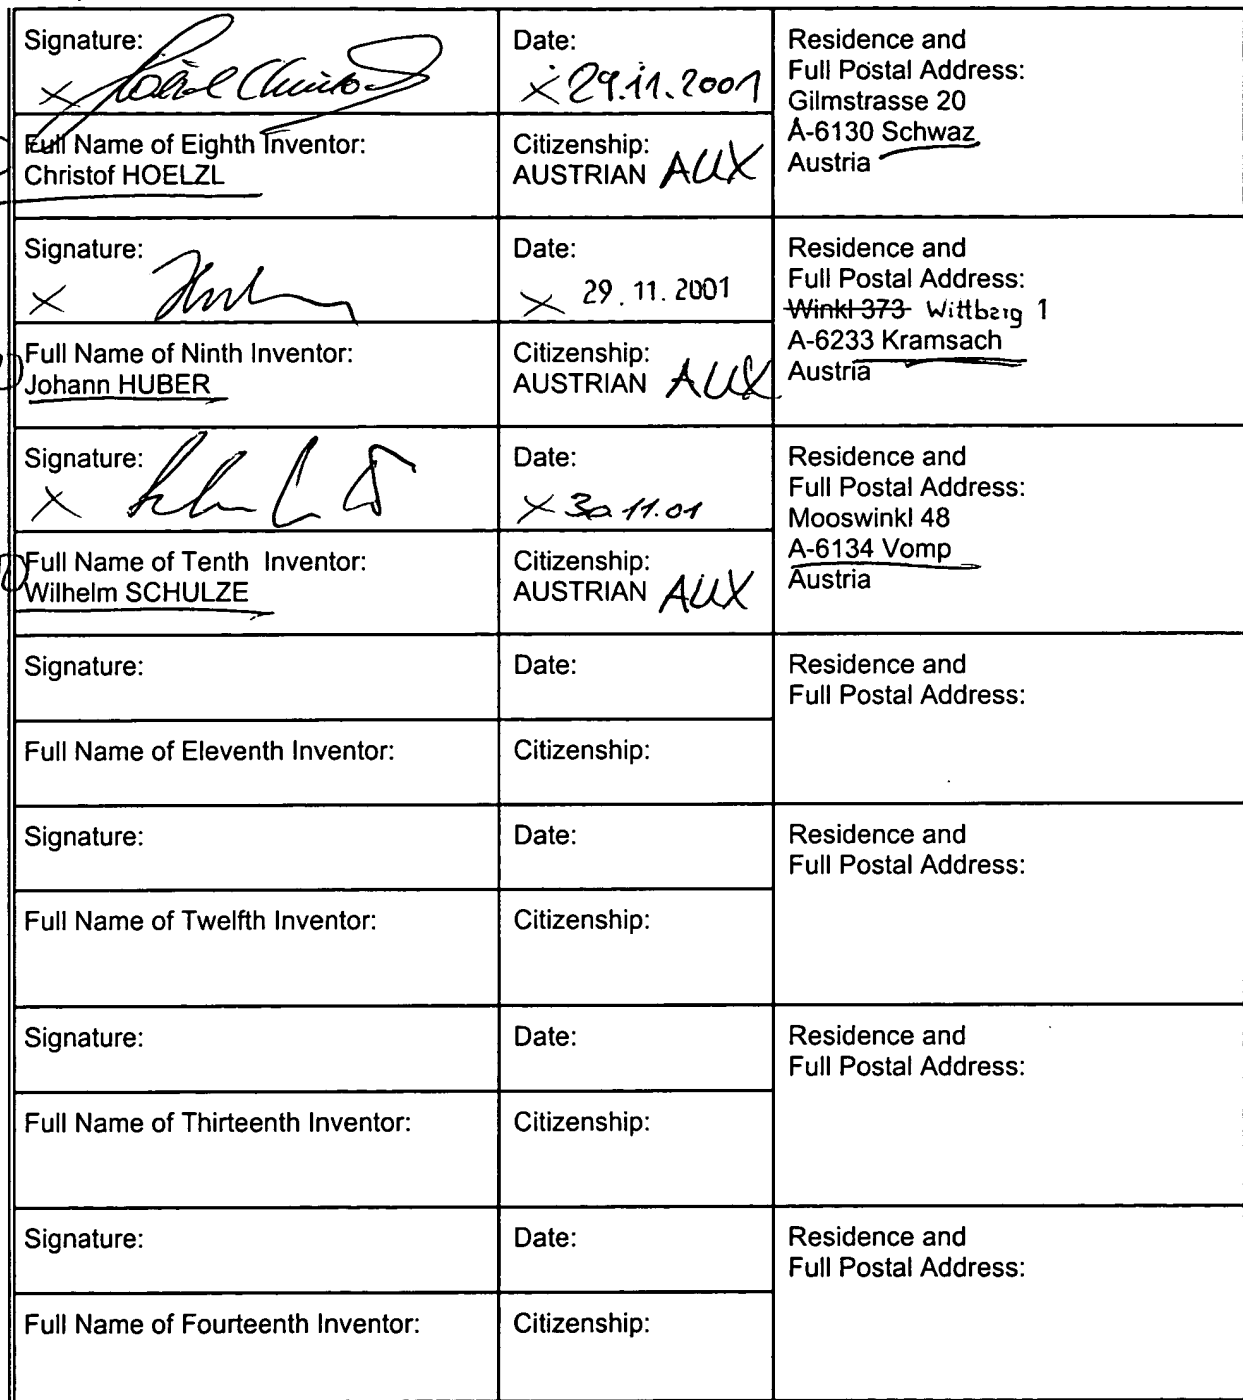 Signature:
Date:
Residence and
Full Postal Address:
Gilmstrasse 20
A-6130 Schwaz
Austria
× 29.11.2001
Full Name of Eighth Inventor:
Christof HOELZL
Citizenship:
AUSTRIAN AUX
Signature:
×
Date:
× 29.11.2001
Residence and
Full Postal Address:
Winkl 373 Wittberg 1
A-6233 Kramsach
Austria
Full Name of Ninth Inventor:
Johann HUBER
Citizenship:
AUSTRIAN AUX
Signature:
×
Date:
× 30.11.01
Residence and
Full Postal Address:
Mooswinkl 48
A-6134 Vomp
Austria
Full Name of Tenth Inventor:
Wilhelm SCHULZE
Citizenship:
AUSTRIAN AUX
Signature:
Date:
Residence and
Full Postal Address:
Full Name of Eleventh Inventor:
Citizenship:
Signature:
Date:
Residence and
Full Postal Address:
Full Name of Twelfth Inventor:
Citizenship:
Signature:
Date:
Residence and
Full Postal Address:
Full Name of Thirteenth Inventor:
Citizenship:
Signature:
Date:
Residence and
Full Postal Address:
Full Name of Fourteenth Inventor:
Citizenship: